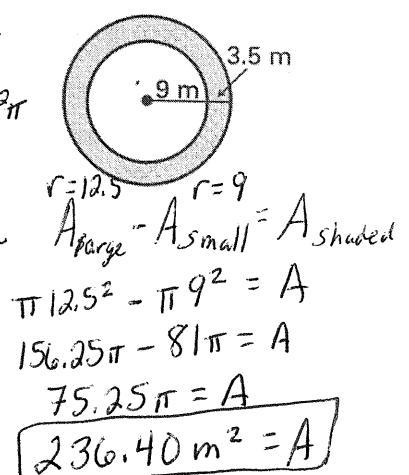 3.5 m
9 m
²π
r=12.5 r=9
A large - A small = A shaded
π12.5² - π9² = A
156.25π - 81π = A
75.25π = A
236.40 m² = A